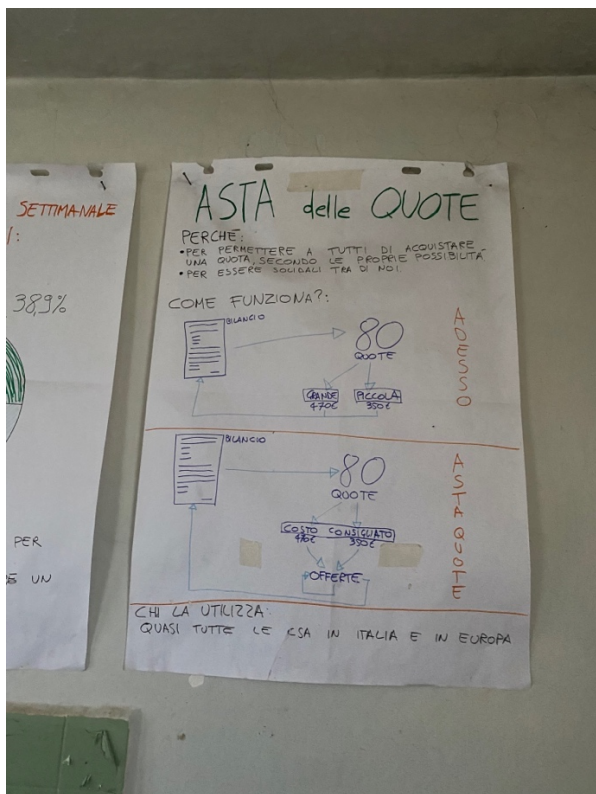 SETTIMANALE
I:
38,9%
PER
E UN
ASTA delle QUOTE
PERCHÈ:
• PER PERMETTERE A TUTTI DI ACQUISTARE
UNA QUOTA, SECONDO LE PROPRIE POSSIBILITÀ
• PER ESSERE SOLIDALI TRA DI NOI.
COME FUNZIONA?:
BILANCIO
80
QUOTE
GRANDE PICCOLA
470€ 350€
ADESSO
BILANCIO
80
QUOTE
COSTO CONSIGLIATO
470€ 350€
OFFERTE
ASTA QUOTE
CHI LA UTILIZZA:
QUASI TUTTE LE CSA IN ITALIA E IN EUROPA